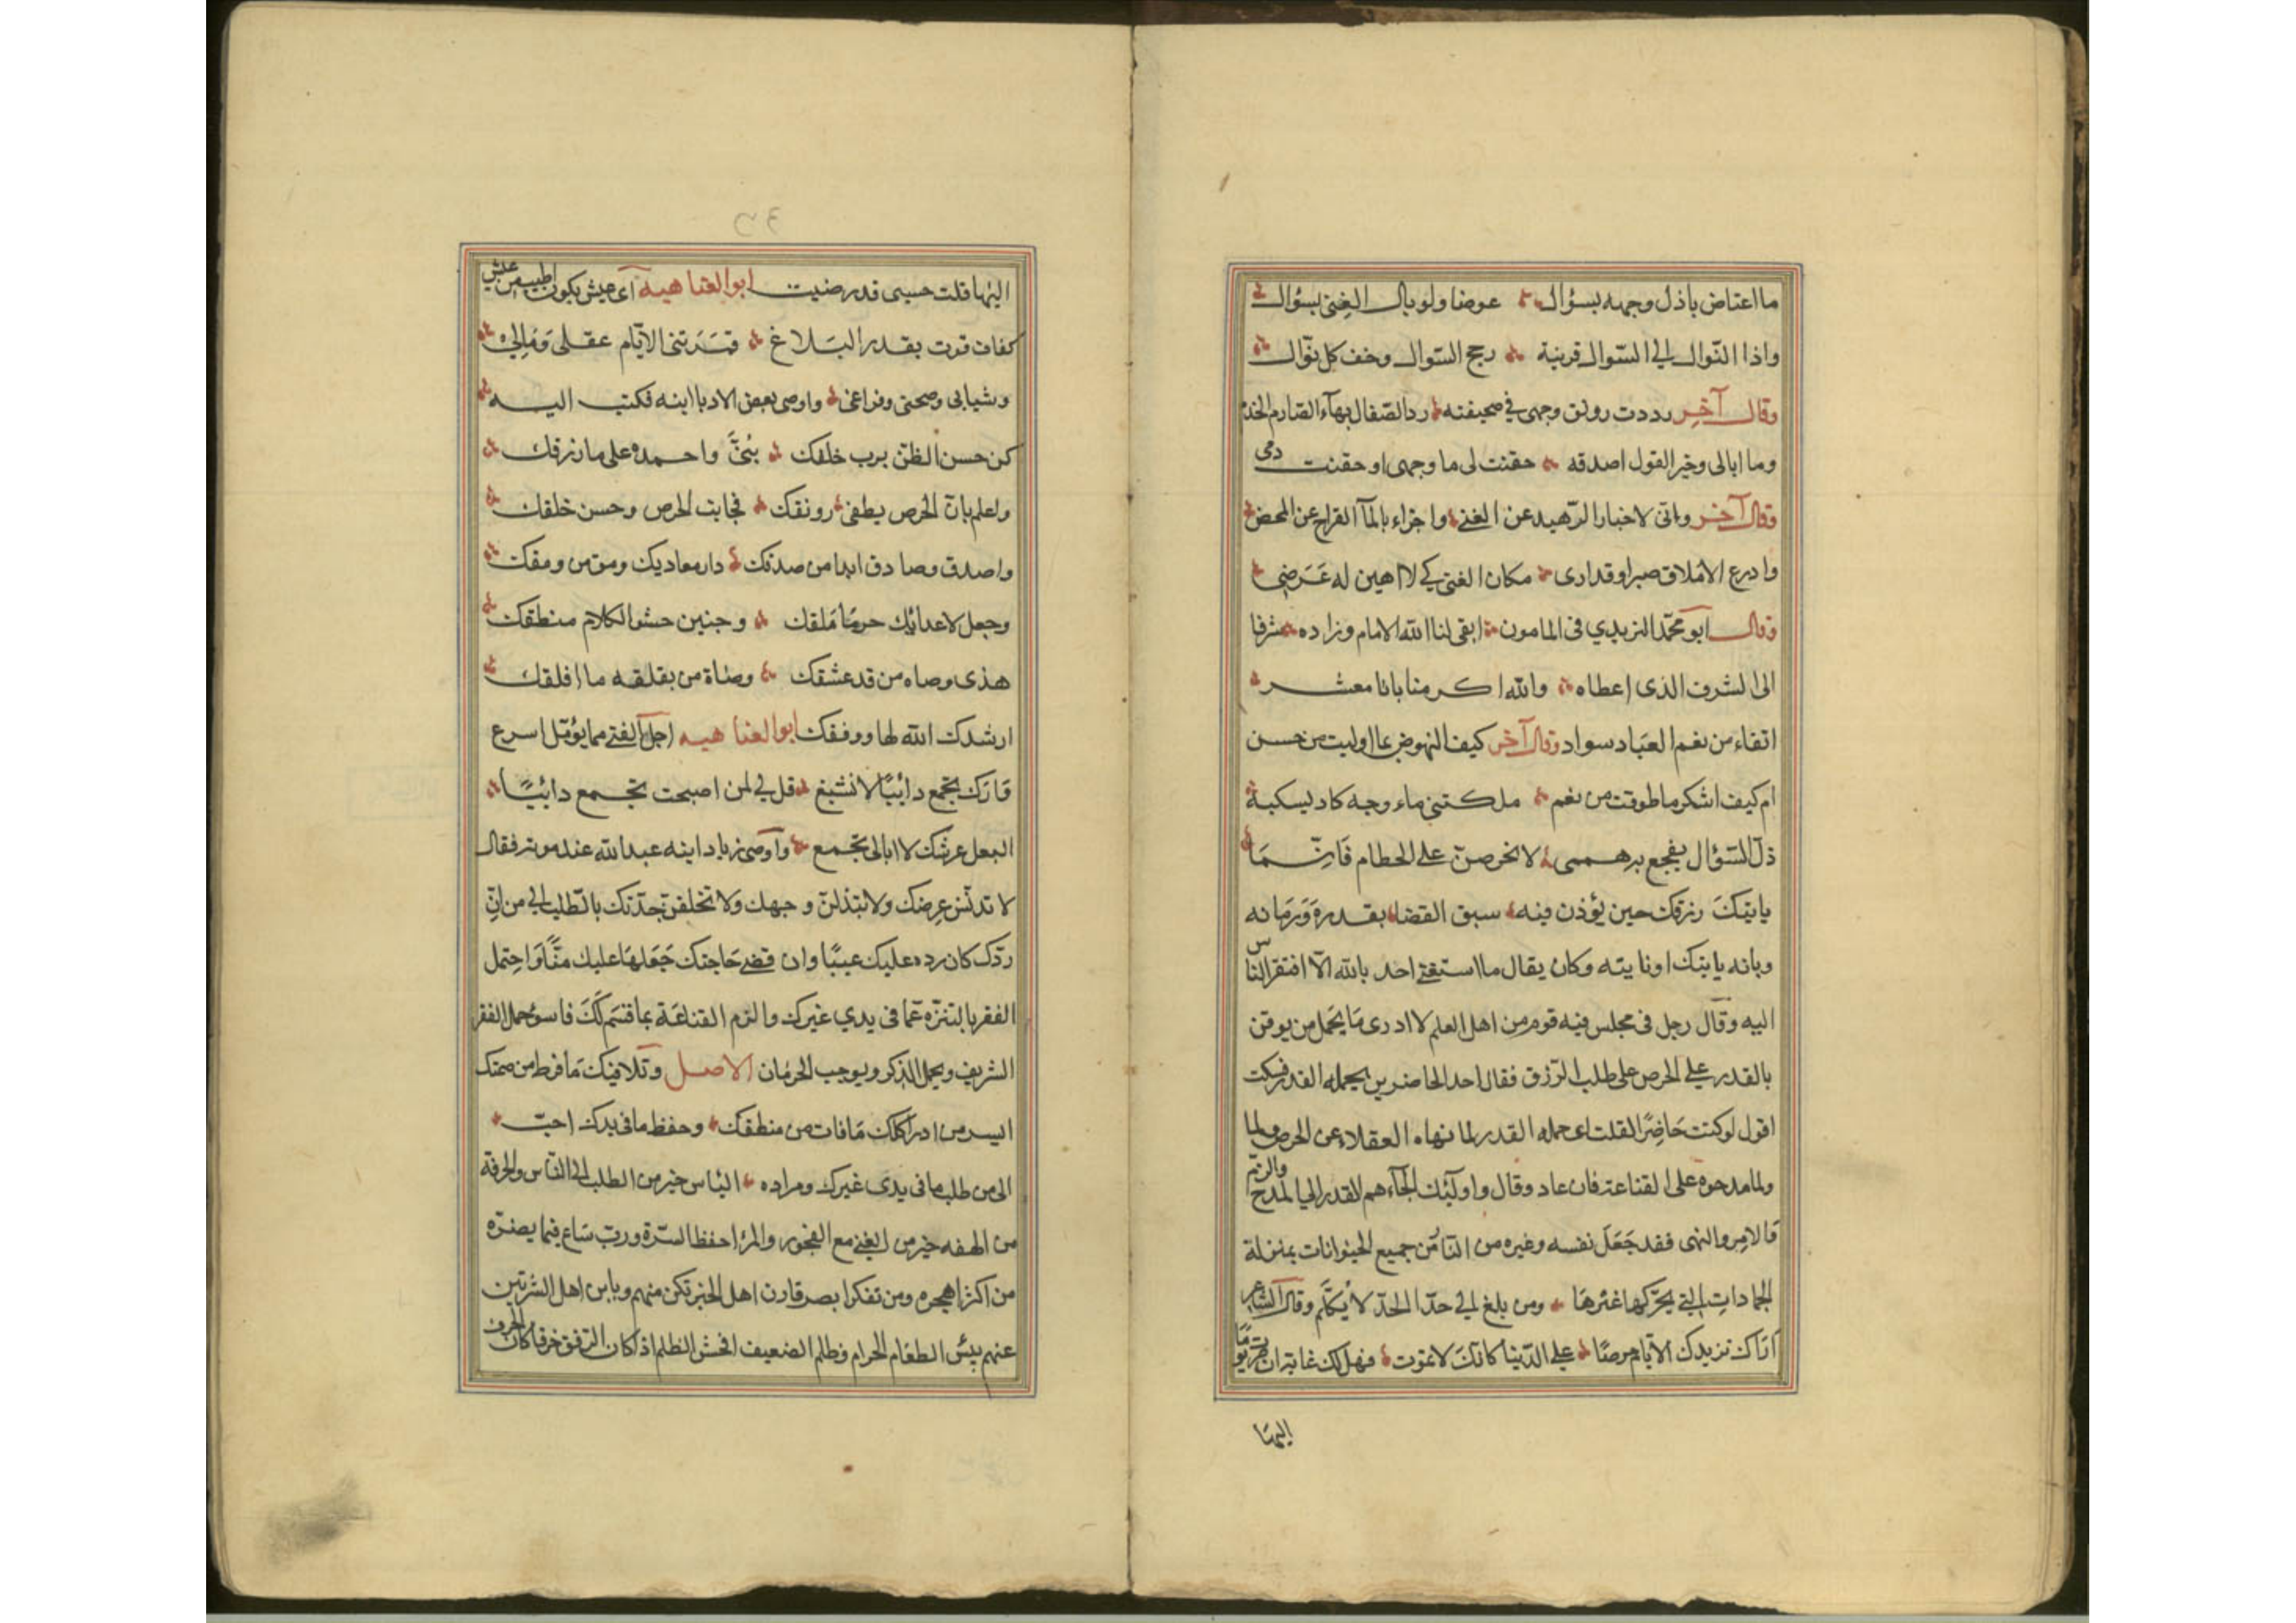 ما اعتاض باذل وجهه بسؤال عوضا ولو بال الغنى بسؤال
واذا النوال الى السوال قرينة رجح السوال وخف كل نوال
وقال آخر رددت رونق وجهى فى صحيفته رد الصقال بهآء الصارم الخذم
وما ابالى وخير القول اصدقه حقنت لى ما وجهى او حقنت دمى
وقال آخر وانى لاختبار الزهيد عن الغنى واجزاء بالمآ القراح عن المحض
وادرع الاملاق صبرا وقد ارى مكان الغنى كى لا اهين له عَرَضِى
وقال ابو محمّد اليزيدي فى المامون ابقى لنا الله الامام وزاده شرفا
الى الشرف الذى اعطاه والله اكرمنا بانا معشر
اتقاء من نعم العباد سواد وقال آخر كيف النهوض بما اوليت من حسن
ام كيف اشكر ما طوقت من نعم ملكتنى ماء وجه كاد يسكبه
ذلّ السّؤال يفجع به هممى لا تحرصنّ على الحطام فَانّمَا
ياتيكَ رزقك حين يؤذن فيه سبق القضا بقدره وَزمَانه
وبانه ياتيك او ناتيه وكان يقال ما استغنى احد بالله الّا افتقر الناس
اليه وقال رجل فى مجلس فيه قوم من اهل العلم لا ادرى مَا يحمل من يوقن
بالقدر على الحرص على طلب الرّزق فقال احد الحاضرين يحمله القدر فسكت
اقول لو كنت حَاضِرًا لقلت اى حمله القدر لما نهاه العقلاء عن الحرص ولما
ولما مدحوه على القناعة فان عاد وقال واولئك الجآءهم القدر الى المدح والذم
فالامر والنهى فقد جَعَلَ نفسه وغيره من النّاس من جميع الحيوانات بمنزلة
الجمادات التى يحرّكها غَيْرهَا ومن بلغ الى حدّ الحدّ لا يُكَلَّم وقال الشاعر
اَرَاك تزيدك الايّام حرصًا على الدّنيا كانّكَ لا تموت فهل لك غاية ان صرت يومًا
اليهَا
اليها قلت حسبى قد رضيت ابو العتاهيه اى عيش يكون اطيب من عيش
كفاف قوت بقدر البَلاغ قَمَرَتنى الايّام عقلى وَمَالِى
وشبابى وصحتى وفراغى واوصى بعض الادبا ابنه فكتب اليه
كن حسن الظنّ برب خلقك بُنَىَّ واحمده على ما رزقك
واعلم بانّ الحرص يطفى رونقك فجانب الحرص وحسن خلقك
واصدق وصادق ابدا من صدقك دار معاديك ومق من ومقك
وجعل لاعدايك حرمًا مَلقك وجنبن حشو الكلام منطقك
هذى وصاه من قد عشقك وصاة من يقلقه ما اقلقك
ارشدك الله لها ووفقك ابو العتاهيه اجل الفتى مما يؤمّل اسرع
فَارَك تجمع دائبًا لا تشبع قل لى لمن اصبحت تجمع دائبًا
البعل عرشك لا ابالى تجمع وآوصى زياد ابنه عبد الله عند موته فقال
لا تدنّس عِرضك ولا تبذلنّ وجهك ولا تخلقنّ جدّتك بالطلب الى من ان
ردّك كان رده عليك عيبًا وان قضى حَاجتك جَعَلهَا عليك منًّا وَاحتمل
الفقر بالتنزّه عمّا فى يدي غيرك والزم القناعَة بما قسم لَكَ فاسوء حمل الفقر
الشريف ويخمل الذكر ويوجب الحرمَان الاصل وتلافيك مَا فرط من صمتك
ايسر من ادراكك مَا فات من منطقك وحفظ ما فى يدك احبّ
الى من طلب ما فى يدى غيرك ومراده الياس خير من الطلب الى النّاس والحرفة
من الهفه خير من الغنى مع الفجور والمرا احفظ السرّه وربّ سَاع فيما يضرّه
من اكثر اهجر ومن تفكر ابصر قارن اهل الخير تكن منهم وباين اهل الشر تبن
عنهم بئس الطعَام الحرام وظلم الضعيف افحش الظلم اذا كان الرّفق خرقا كان الخرق